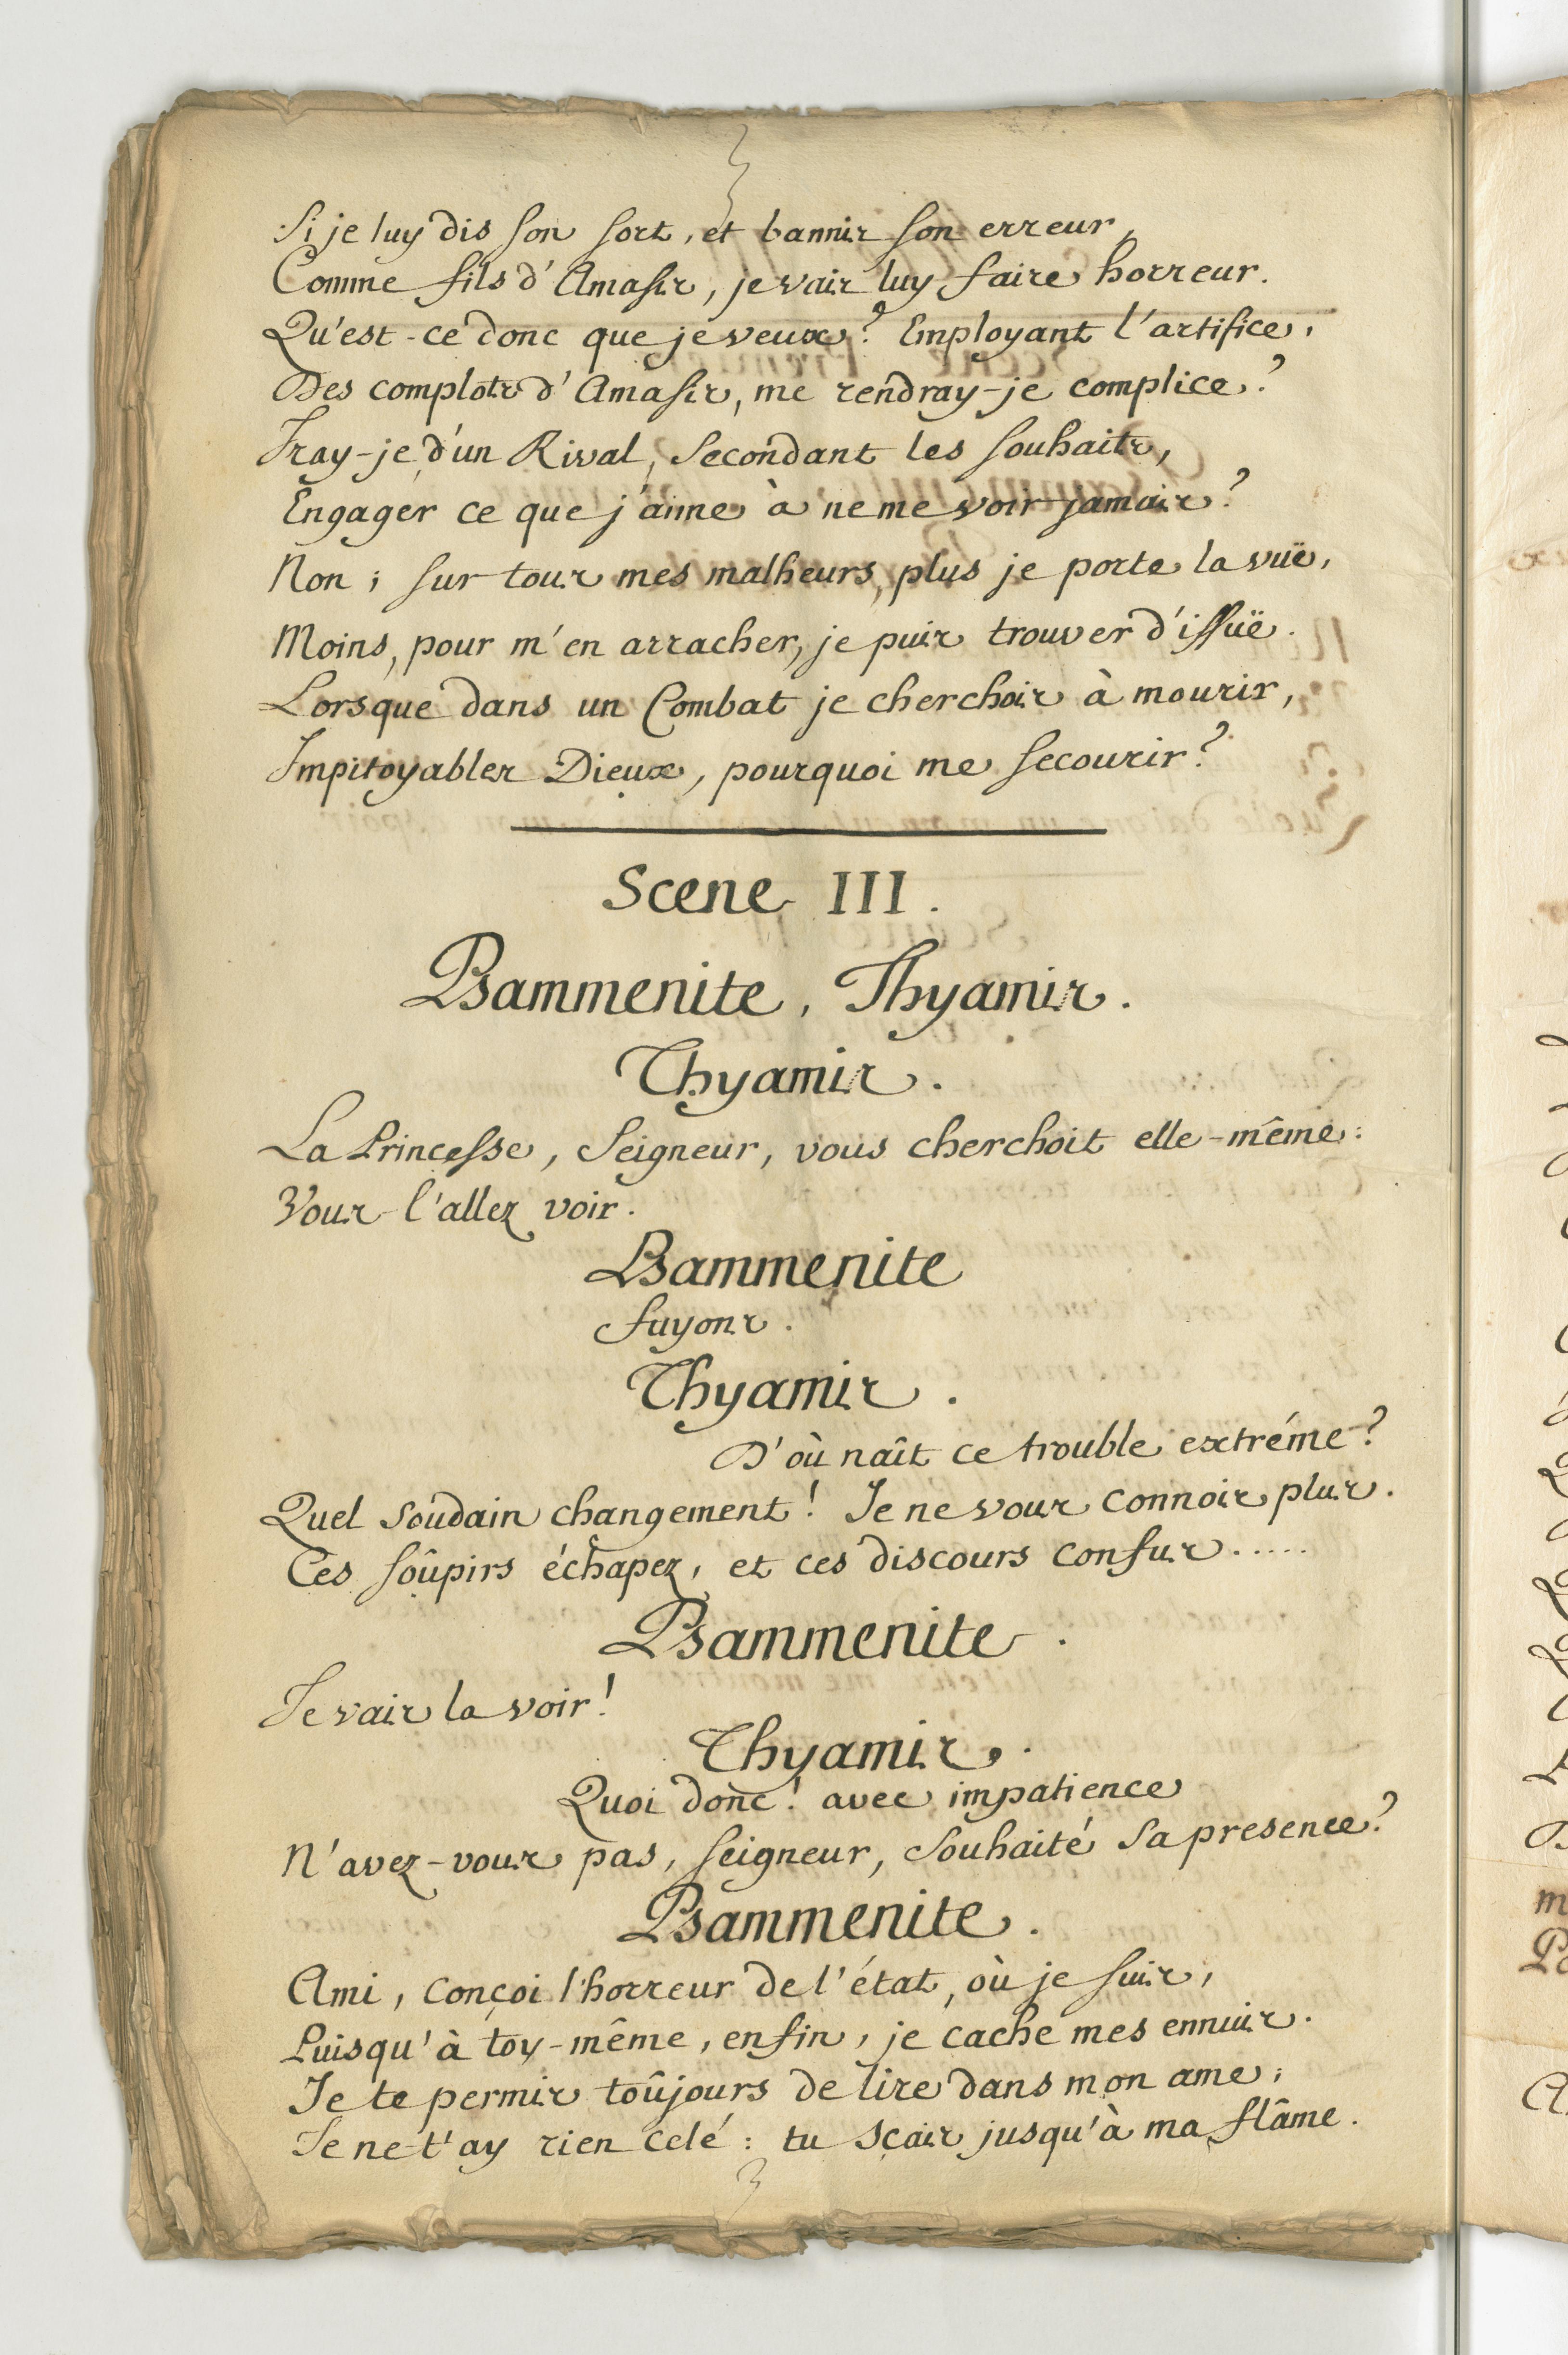 Si je luy dis son sort, et bannis son erreur,
Comme fils d'Amasis, je vais luy faire horreur.
Qu'est-ce donc que je veux? Employant l'artifice,
Des complots d'Amasis, me rendray-je complice?
Iray-je d'un Rival, secondant les souhaits,
Engager ce que j'aime à ne me voir jamais?
Non; sur tous mes malheurs, plus je porte la vuë,
Moins, pour m'en arracher, je puis trouver d'issuë.
Lorsque dans un Combat je cherchois à mourir,
Impitoyables Dieux, pourquoi me secourir?
Scene III.
Psammenite, Thyamis.
Thyamis.
La Princesse, Seigneur, vous cherchoit elle-même:
Vous l'allez voir.
Psammenite
fuyons.
Thyamis.
D'où naît ce trouble extréme?
Quel soudain changement! Je ne vous connois plus.
Ces soûpirs échapez, et ces discours confus.....
Psammenite.
Je vais la voir!
Thyamis.
Quoi donc! avec impatience
N'avez-vous pas, seigneur, souhaité sa presence?
Psammenite.
Ami, conçoi l'horreur de l'état, où je suis,
Puisqu'à toy-même, enfin, je cache mes ennuis.
Je te permis toûjours de lire dans mon ame;
Je ne t'ay rien celé: tu sçais jusqu'à ma flâme.